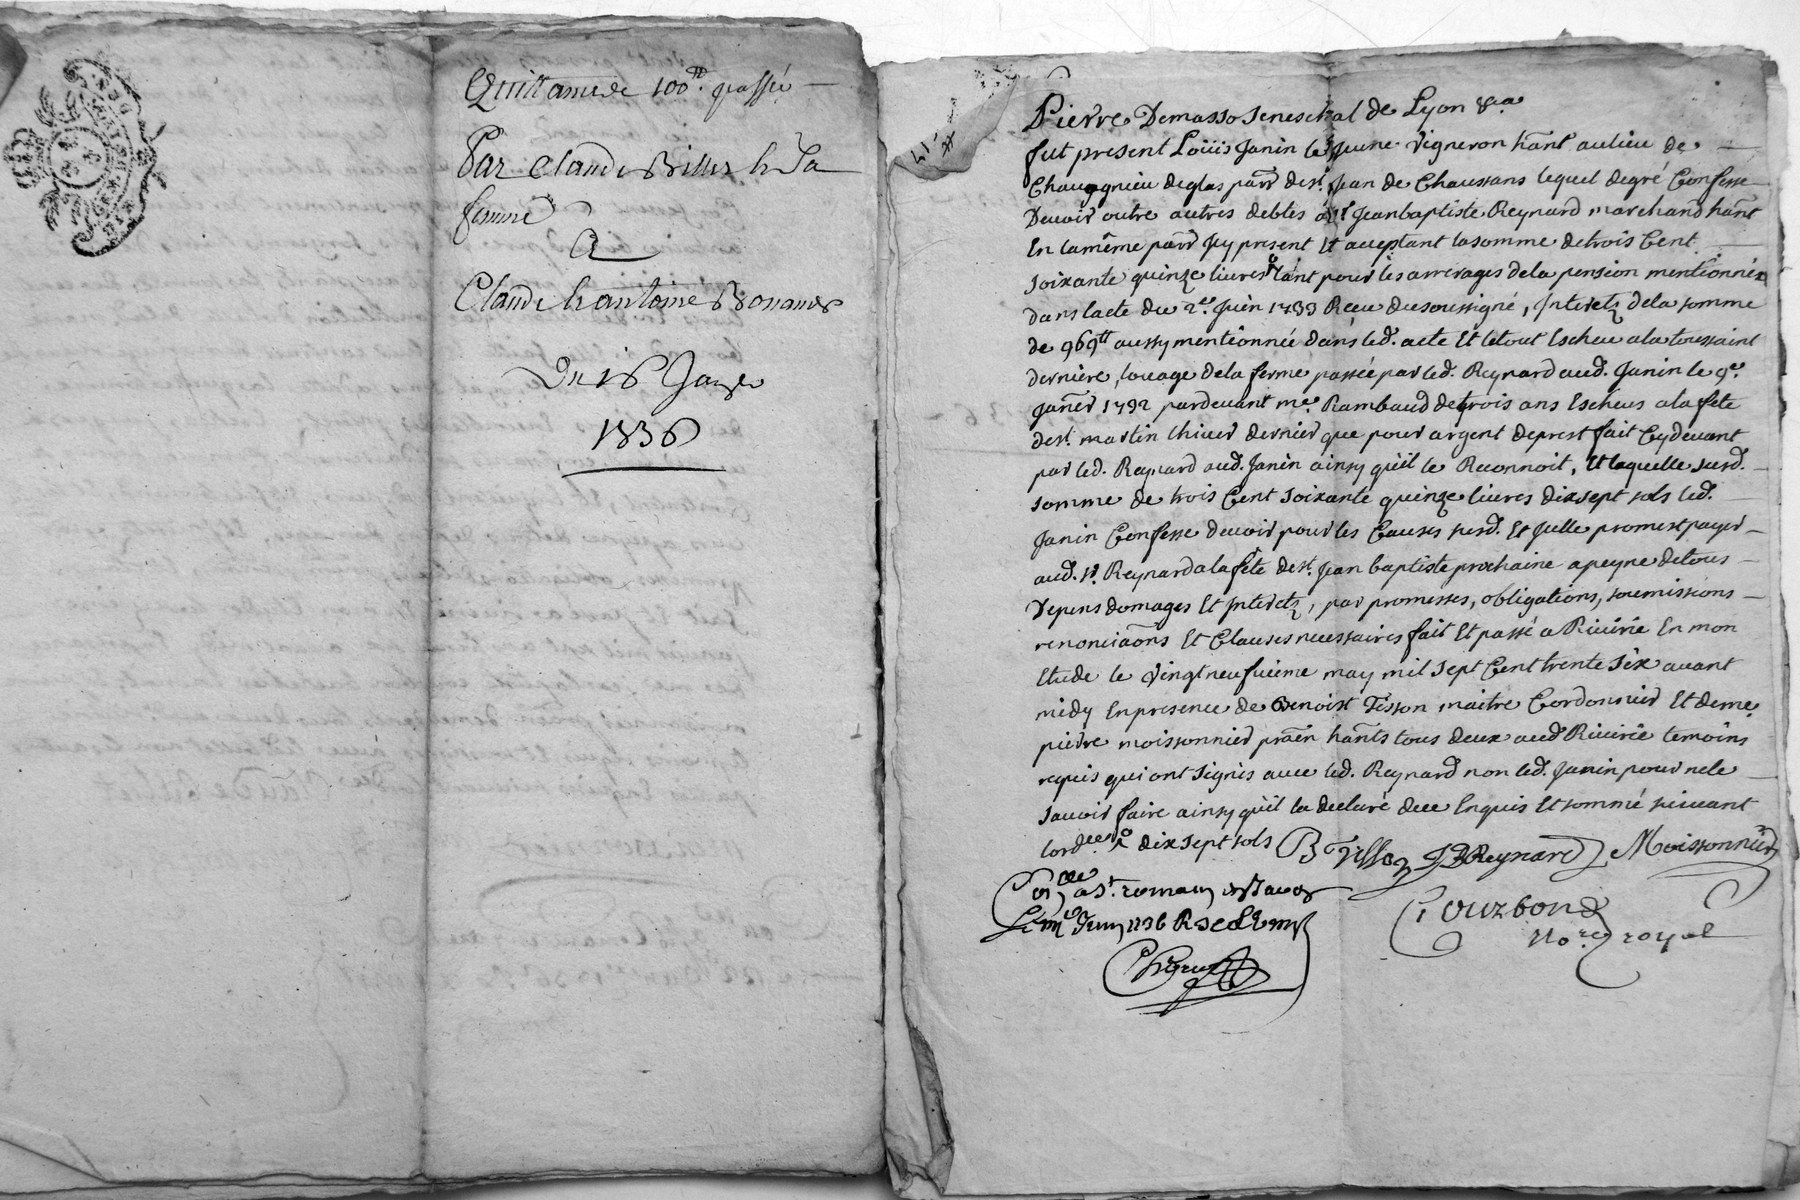 Quittance de 100ᵗᵗ. passée
Par Claude Biller & Sa
femme
A
Claude & antoine Bonnand
Du 16 Janvier
1736
Pierre Demasso Seneschal de Lyon &ca
fut present Loüis Janin le Jeune Vigneron hānt au lieu de
Chaugnieu deglas parr. de st. Jean de Chaussans lequel de gré Confesse
Devoir outre autres debtes a sr. Jean baptiste Reynard marchand hānt
En la même parr. Icy present Et acceptant la somme de trois Cent
soixante quinze livres tant pour les arrerages de la pension mentionnée
dans lacte du 2e. Juin 1733 Recu du soussigné, Interetz de la somme
de 969ᵗᵗ aussy mentionnée dans led. acte Et le tout Escheu a la toussaint
derniere, louage de la ferme passée par led. Reynard aud. Janin le 9e.
Janer 1732 pardevant me. Rambaud de trois ans Escheus a la fete
de st. martin lhiver dernier que pour argent de prest fait Cy devant
par led. Reynard aud. Janin ainsy quil le Reconnoit, Et laquelle susd.
somme de trois Cent soixante quinze livres dix sept sols led.
Janin Confesse devoir pour les Causes susd. Et Icelle promest payer
aud. sr. Reynard a la fête de st. Jean baptiste prochaine a peyne de tous
depens domages Et Interetz, par promesses, obligations, soumissions
renonciaōns Et Clauses necessaires fait Et passé a Riuirie En mon
Etude le vingt neufuieme may mil sept Cent trente six avant
midy En presence de Benoist Tisson maitre Cordonnier Et de me.
pierre moissonnier praēn hānts tous deux aud Riuirie temoins
requis qui ont signés avec led. Reynard non led. Janin pour ne le
sauoir faire ainsy quil la declaré de ce Enquis Et sommé suiuant
lordce. dix sept sols B Tisson JB Reynard Moissonnier
Con.lé a St. romain
Le Juin 1736 R
Couzbond
No.re royal